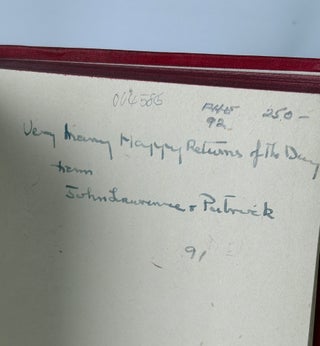 014585
250-
92
Very Many Happy Returns of the Day
from
John Laurence & Patrick
91